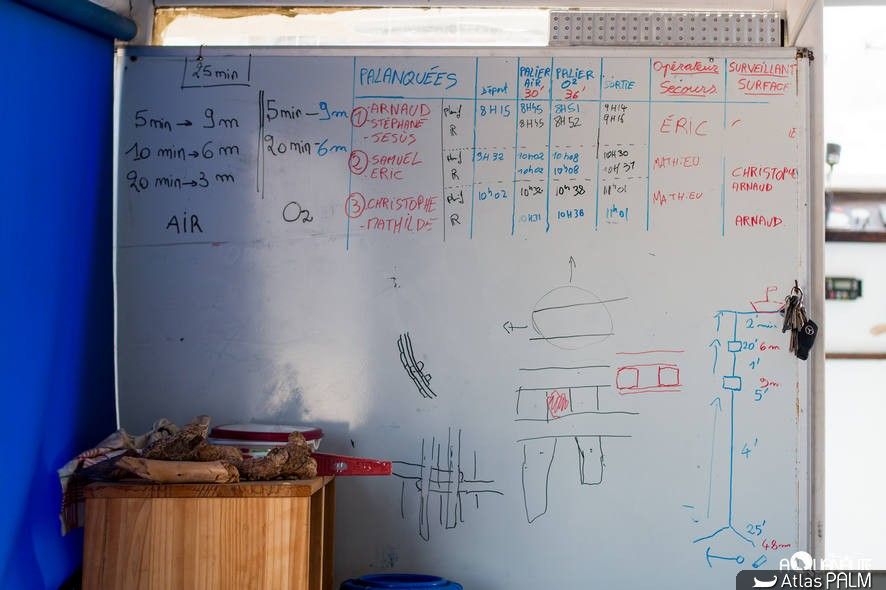 25 min
5 min → 9 m
10 min → 6 m
20 min → 3 m
AIR
5 min - 9 m
20 min - 6 m
O2
PALANQUÉES Départ PALIER AIR 30' PALIER O2 36' SORTIE Opérateur Secours SURVEILLANT SURFACE
1 - ARNAUD 8H15 8H45 8H51 9H14 ÉRIC
- STÉPHANE R 8H45 8H52 9H16
- JESÚS
2 - SAMUEL 9H32 10H02 10H08 10H30 MATHIEU CHRISTOPHE
- ERIC R 10H02 10H08 ARNAUD
3 - CHRISTOPHE 10h02 10h38 11h01 MATHIEU
- MATHILDE R 10H31 10H38 11h01 ARNAUD
2' min
20' 6m
1'
9m
5'
4'
25'
48m
AQUANAUTE
Atlas PALM